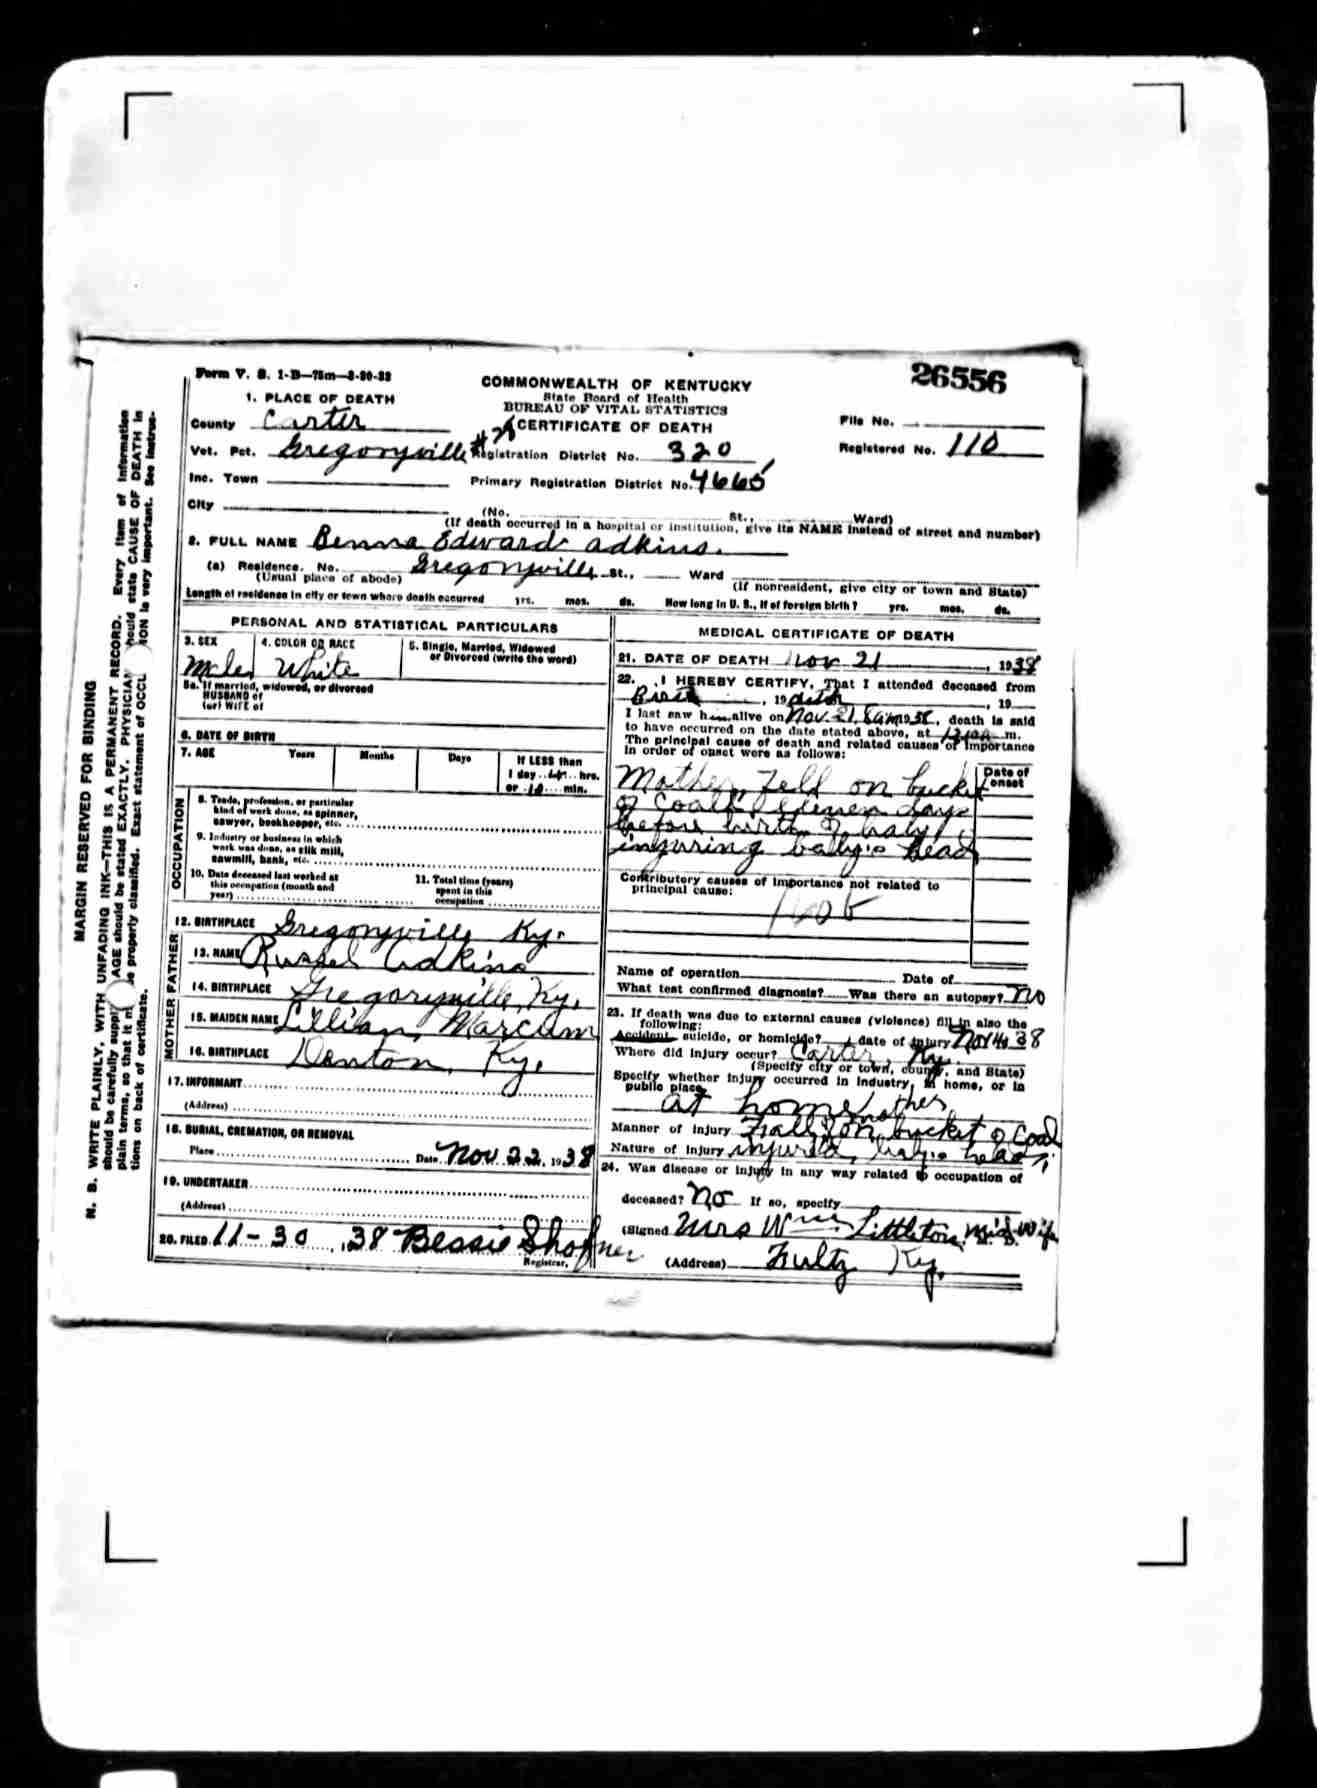 26556
Form V. S. 1-B—75m—8-30-32
COMMONWEALTH OF KENTUCKY
State Board of Health
BUREAU OF VITAL STATISTICS
CERTIFICATE OF DEATH
1. PLACE OF DEATH
County Carter
File No.
Vot. Pct. Gregoryville #28 Registration District No. 320
Registered No. 110
Inc. Town
Primary Registration District No. 4665
City (No. St., Ward)
(If death occurred in a hospital or institution, give its NAME instead of street and number)
2. FULL NAME Benna Edward Adkins.
(a) Residence. No. Gregoryville St., Ward
(Usual place of abode) (If nonresident, give city or town and State)
Length of residence in city or town where death occurred yrs. mos. ds. How long in U. S., if of foreign birth? yrs. mos. ds.
PERSONAL AND STATISTICAL PARTICULARS
3. SEX 4. COLOR OR RACE 5. Single, Married, Widowed
or Divorced (write the word)
Male White
5a. If married, widowed, or divorced
HUSBAND of
(or) WIFE of
6. DATE OF BIRTH
7. AGE Years Months Days If LESS than
1 day hrs.
or 10 min.
OCCUPATION
8. Trade, profession, or particular
kind of work done, as spinner,
sawyer, bookkeeper, etc.
9. Industry or business in which
work was done, as silk mill,
sawmill, bank, etc.
10. Date deceased last worked at
this occupation (month and
year)
11. Total time (years)
spent in this
occupation
12. BIRTHPLACE Gregoryville Ky.
FATHER
13. NAME Russel Adkins
14. BIRTHPLACE Gregoryville, Ky.
MOTHER
15. MAIDEN NAME Lillian Marcum
16. BIRTHPLACE Denton, Ky.
17. INFORMANT
(Address)
18. BURIAL, CREMATION, OR REMOVAL
Place Date Nov 22, 1938
19. UNDERTAKER
(Address)
20. FILED 11-30, 38 Bessie Shoffner
Registrar.
MEDICAL CERTIFICATE OF DEATH
21. DATE OF DEATH Nov 21, 1938
22. I HEREBY CERTIFY, That I attended deceased from
Birth, 19 , 19
I last saw him alive on Nov. 21, 8 am 1938, death is said
to have occurred on the date stated above, at m.
The principal cause of death and related causes of importance
in order of onset were as follows:
Date of
onset
Mother fell on bucket
of coal Eleven days
before birth of baby
injuring baby's head
Contributory causes of importance not related to
principal cause:
160b
Name of operation Date of
What test confirmed diagnosis? Was there an autopsy? No
23. If death was due to external causes (violence) fill in also the
following:
Accident, suicide, or homicide? date of injury Nov 38
Where did injury occur? Carter, Ky.
(Specify city or town, county, and State)
Specify whether injury occurred in industry, in home, or in
public place.
at home
Mother
Manner of injury Falls on bucket of Coal
Nature of injury injured baby's head
24. Was disease or injury in any way related to occupation of
deceased? No If so, specify
(Signed Mrs Wm Littleton, Mid-Wife
(Address) Fultz Ky.
MARGIN RESERVED FOR BINDING
N. B. WRITE PLAINLY, WITH UNFADING INK—THIS IS A PERMANENT RECORD. Every item of information
should be carefully AGE should be stated EXACTLY. should state CAUSE OF DEATH in
plain terms, so that it properly classified. Exact statement of is very important. See instruc-
tions on back of certificate.